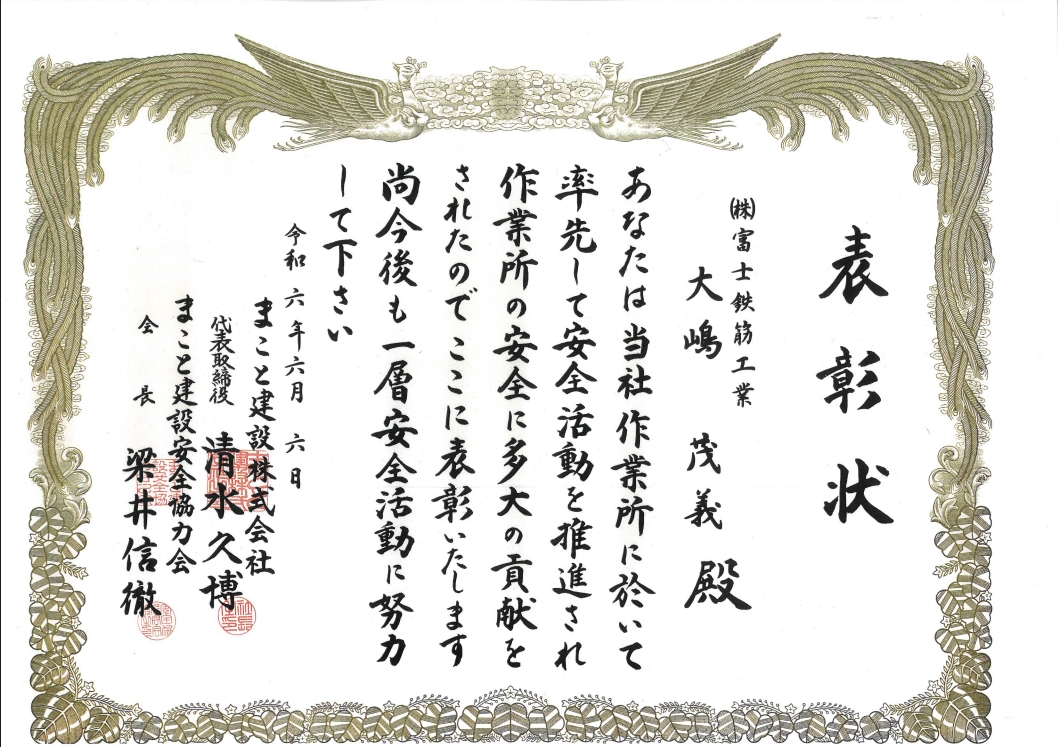 表彰状
(株)富士鉄筋工業
大嶋 茂義 殿
あなたは当社作業所に於いて
率先して安全活動を推進され
作業所の安全に多大の貢献を
されたのでここに表彰いたします
尚今後も一層安全活動に努力
して下さい
令和 六年六月 六日
まこと建設株式会社
代表取締役 清水久博
まこと建設安全協力会
会長 梁井信徹